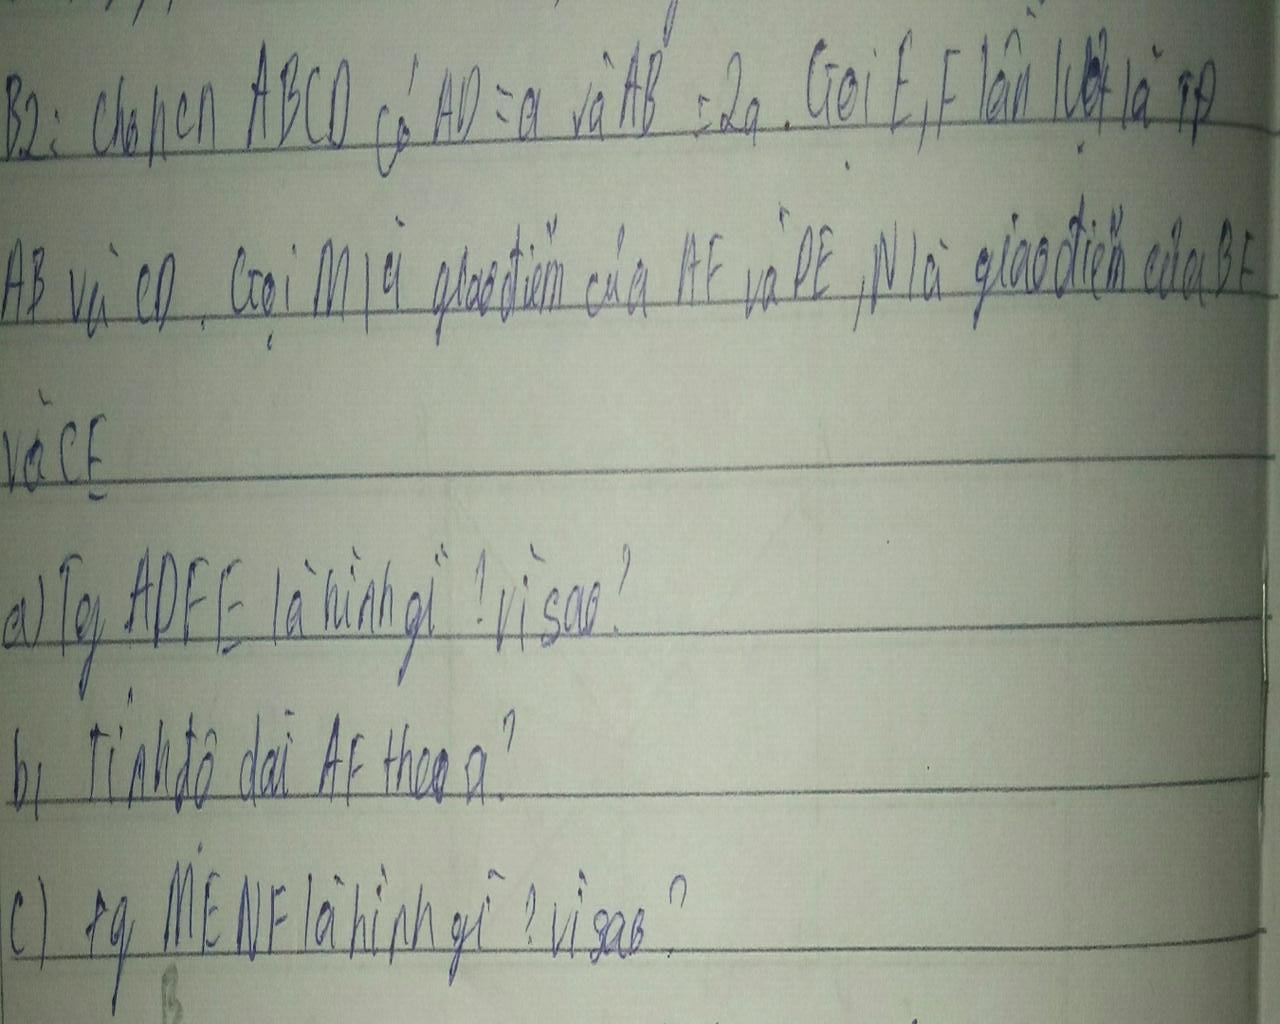 B2: Cho hcn ABCD có AD = a và AB = 2a. Gọi E, F lần lượt là TĐ
AB và CD. Gọi M là giao điểm của AF và DE, N là giao điểm của BF
và CE
a) Tg ADFE là hình gì? Vì sao?
b, Tính độ dài AF theo a?
c) tg MENF là hình gì? Vì sao?
B